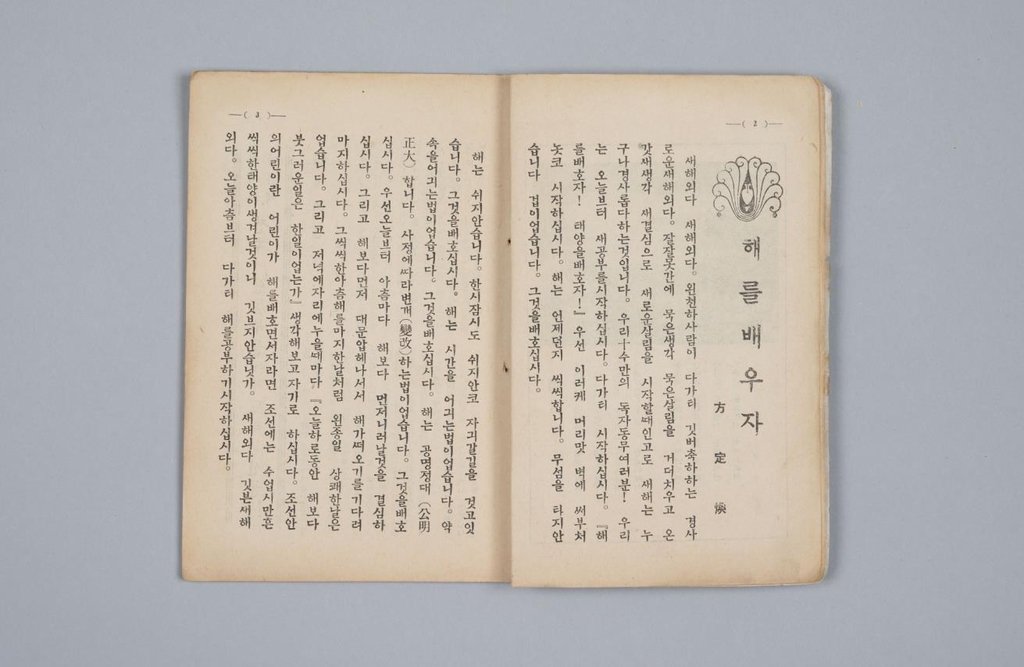 —( 2 )—
해를배우자
方定煥
새해외다 새해외다。왼천하사람이 다가티 깃버축하하는 경사
로운새해외다。잘잘못간에 묵은생각 묵은살림을 거더치우고 온
갓새생각 새결심으로 새로운살림을 시작할때인고로 새해는 누
구나경사롭다하는것임니다。우리十수만의 독자동무여러분! 우리
는 오늘브터 새공부를시작하십시다。다가티 시작하십시다。『해
를배호자! 태양을배호자!』우선 이러케 머리맛 벽에 써부처
놋코 시작하십시다。해는 언제던지 씩씩합니다。무섬을 타지안
습니다 겁이업습니다。그것을배호십시다。
—( 3 )—
해는 쉬지안습니다。한시잠시도 쉬지안코 자긔갈길을 것고잇
습니다。그것을배호십시다。해는 시간을 어긔는법이업습니다。약
속을어긔는법이업습니다。그것을배호십시다。해는 공명정대(公明
正大)합니다。사정에따라변개(變改)하는법이업습니다。그것을배호
십시다。우선오늘부터 아츰마다 해보다 먼저니러날것을 결심하
십시다。그리고 해보다먼저 대문압헤나서서 해가떠오기를기다려
마지하십시다。그씩씩한아츰해를마지한날처럼 왼종일 상쾌한날은
업습니다。그리고 저녁에자리에누을때마다『오늘하로동안 해보다
붓그러운일은 한일이업는가』생각해보고자기로 하십시다。조선안
의어린이란 어린이가 해를배호면서자라면 조선에는 수업시만흔
씩씩한태양이생겨날것이니 깃브지안습닛가。새해외다 깃븐새해
외다。오늘아츰브터 다가티 해를공부하기시작하십시다。